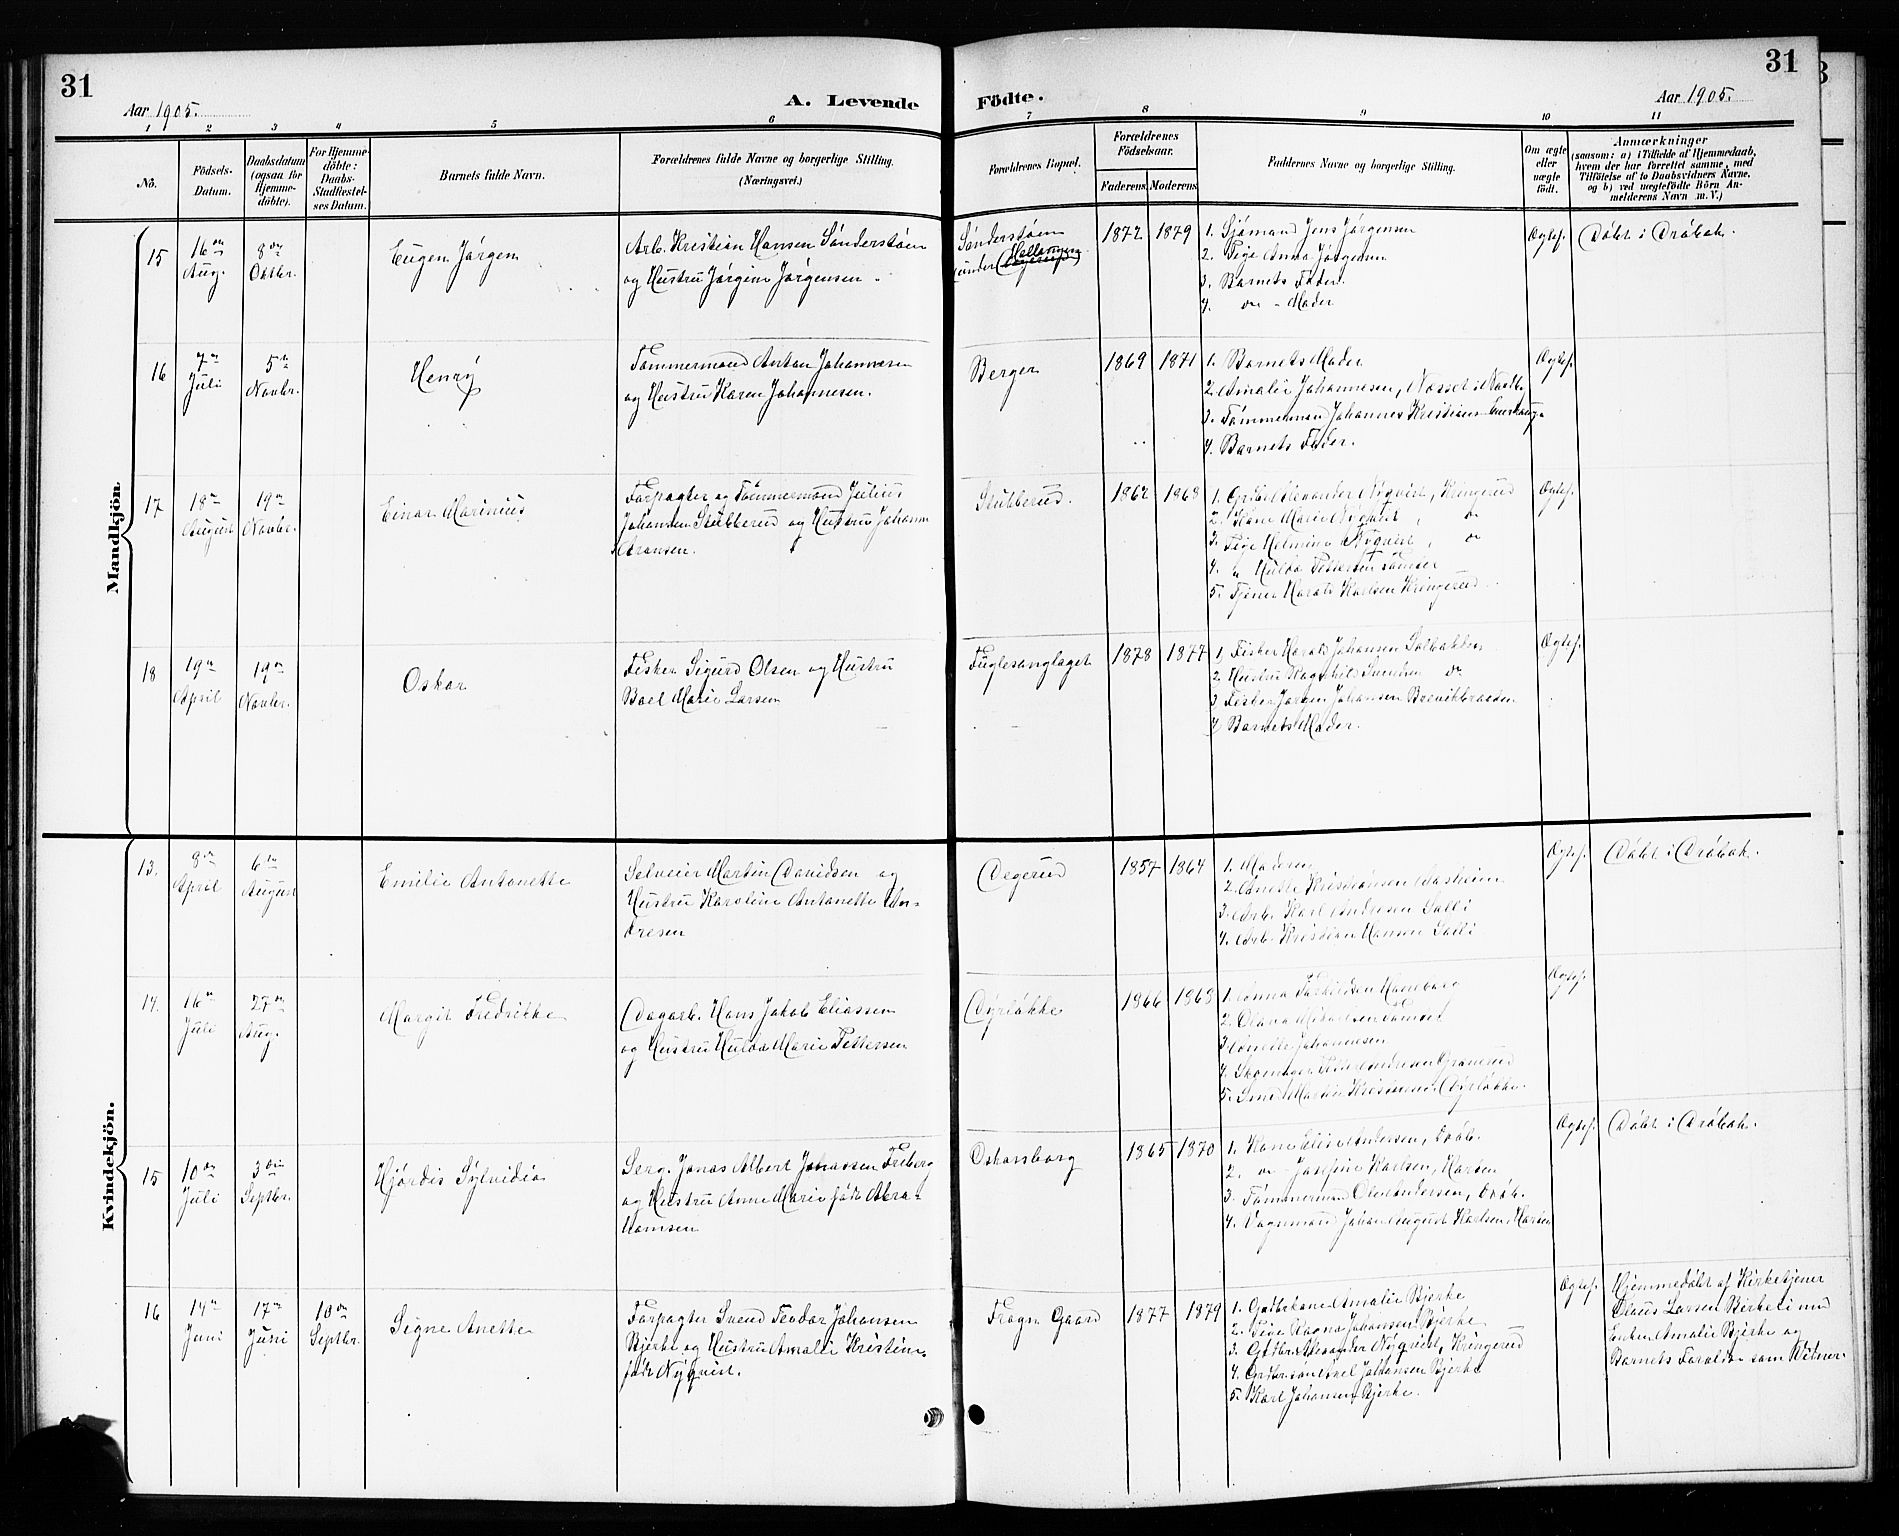 31
31
Aar 1905.
A. Levende
Födte.
Aar 1905.
1 2 3 4 5 6 7 8 9 10 11
No.
Födsels-
Datum.
Daabsdatum
(ogsaa for
Hjemme-
döbte).
For Hjemme-
döbte:
Daabs-
Stadfæstel-
ses Datum.
Barnets fulde Navn.
Forældrenes fulde Navne og borgerlige Stilling.
(Næringsvei.)
Forældrenes Bopæl.
Forældrenes
Födselsaar.
Faderens.
Moderens.
Faddernes Navne og borgerlige Stilling.
Om ægte
eller
uægte
födt.
Anmærkninger
(saasom: a) i Tilfælde af Hjemmedaab,
hvem der har forrettet samme, med
Tilföielse af to Daabsvidners Navne,
og b) ved uægtefödte Börn An-
melderens Navn m. V.)
Mandkjön
15
16de
Aug.
8de
Octbr.
Eugen Jørgen
Arb. Kristian Hansen Sønderstøen
og Hustru Jørgine Jørgensen
Sønderstøen
under Hallangen
1872 1879
1. Sjømand Jens Jørgensen
2. Pige Anna Jørgensen
3. Barnets Fader
4. do - Moder
Ægtef.
Døbt i Drøbak.
16
7de
Juli
5te
Novbr.
Henry
Tømmermand Anton Johannesen
og Hustru Karen Johannesen.
Berger
1869 1871
1. Barnets Moder
2. Amalie Johannesen, Nesset i
3. Tømmermand Johannes Kristians
4. Barnets Fader.
Ægtef.
17
18de
August
19de
Novbr.
Einar Marinius
Forpagter og Tømmermand Julius
Johansen Stubberud og Hustru Johanne
Aronsen.
Stubberud.
1862 1868
1. Gdbr. Alexander Nyqvist, Kringerud
2. Kone Marie Nyqvist, do
3. Pige Helmine Nyqvist, do
4. " Hulda Pettersen
5. Tjener Harald Karlsen Kringerud
Ægtef.
18
19de
April
19de
Novbr.
Oskar
Fisker Sigurd Olsen og Hustru
Boel Marie Larsen
Fuglesanglaget
1878 1877
1. Fisker Harald Johansen Solbakken
2. Hustru Ragnhild Svendsen do
3. Fisker Jørgen Johansen Brevikbraaten
4. Barnets Moder.
Ægtef.
Kvindekjön.
13.
8de
April
6te
August
Emilie Antonette
Selveier Martin Davidsen og
Hustru Karoline Antonette An-
dresen
Degerud
1857 1864
1. Moderen
2. Anette Kristiansen Aasheim
3. Arb. Karl Andresen
4. Arb. Kristian Hansen
Ægtef.
Døbt i Drøbak.
14.
16de
Juli
27de
Aug.
Margit Fredrikke
Dagarb. Hans Jakob Eliassen
og Hustru Hulda Marie Pettersen
Dyrløkke
1866 1868
1. Anna Torkildsen
2. Olava Mikaelsen
3. Anette Johannesen
4. Skomager Andersen Granerud
5. Martin Kristiansen Dyrløkke.
Ægtef.
15
10de
Juli
3die
Septbr.
Hjørdis Sylvidia
Serg. Jonas Albert Johansen Freberg
og Hustru Anne Marie født Abra-
hamsen
Oskarsborg
1865 1870
1. Kone Elise Andersen, Drøb.
2. do - Josefine Karlsen, Horten
3. Tømmermand Ole Andersen, Drøb.
4. Vognmand Johan August Karlsen, Horten
Ægtef.
Døbt i Drøbak.
16
14de
Juni
17de
Juni
10de
Septbr.
Signe Anette
Forpagter Svend Teodor Johansen
Bjerke og Hustru Amalie Kristine
født Nyqvist.
Frogn Gaard
1877 1879
1. Gdbr. kone Amalie Bjerke
2. Pige Ragna Johansen Bjerke
3. Gdbr. Alexander Nyqvist, Kringerud
4. Gdbr. søn Johansen Bjerke
5. Karl Johansen Bjerke.
Ægtef.
Hjemmedøbt af Kirketjener
Olaus Larsen Birkeli med
Enken Amalie Bjerke og
Barnets Forældre som Vidner.